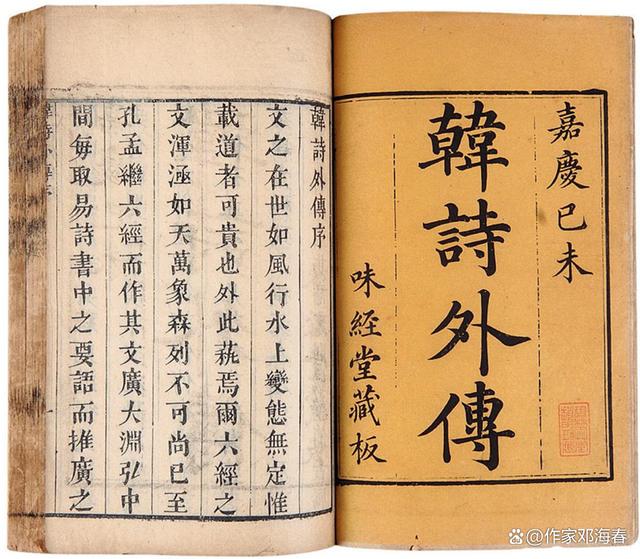 嘉慶己未
韓詩外傳
味經堂藏板
韓詩外傳序
文之在世如風行水上變態無定惟
載道者可貴也外此蓺焉爾六經之
文渾涵如天萬象森列不可尚已至
孔孟繼六經而作其文廣大淵弘中
間每取易詩書中之要語而推廣之
@作家邓海春